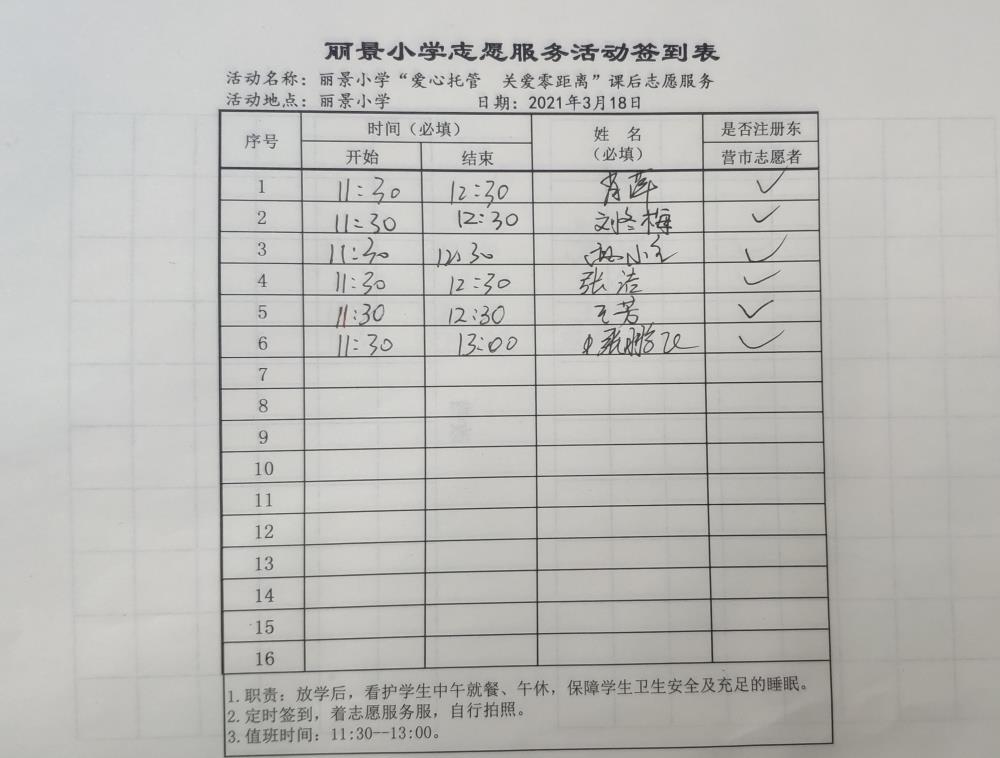 丽景小学志愿服务活动签到表
活动名称：丽景小学“爱心托管　关爱零距离”课后志愿服务
活动地点：丽景小学　日期：2021年3月18日
序号 时间（必填） 姓名（必填） 是否注册东营市志愿者
开始 结束
1 11:30 12:30 肖莲 ✓
2 11:30 12:30 刘冬梅 ✓
3 11:30 12:30 ✓
4 11:30 12:30 张洁 ✓
5 11:30 12:30 王芳 ✓
6 11:30 13:00 ✓
7
8
9
10
11
12
13
14
15
16
1.职责：放学后，看护学生中午就餐、午休，保障学生卫生安全及充足的睡眠。
2.定时签到，着志愿服务服，自行拍照。
3.值班时间：11:30--13:00。